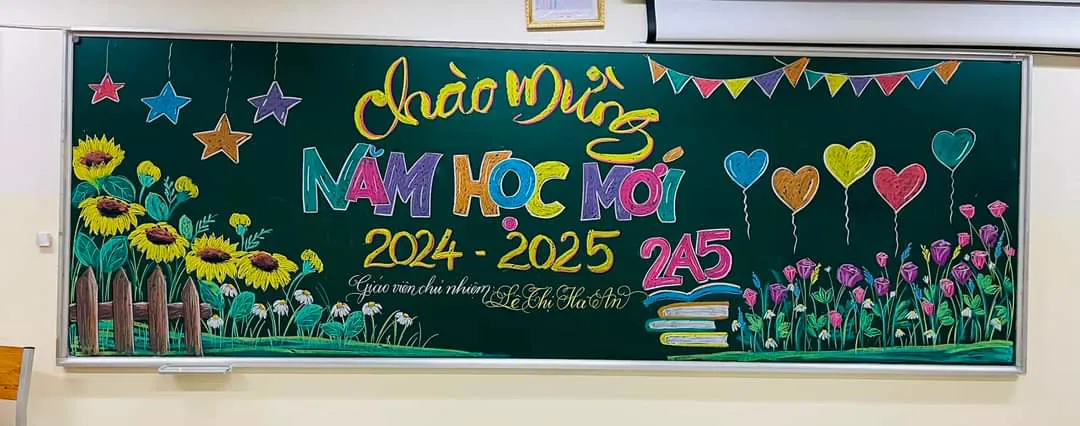 Chào Mừng
NĂM HỌC MỚI
2024 - 2025
2A5
Giáo viên chủ nhiệm: Lê Thị Hà An